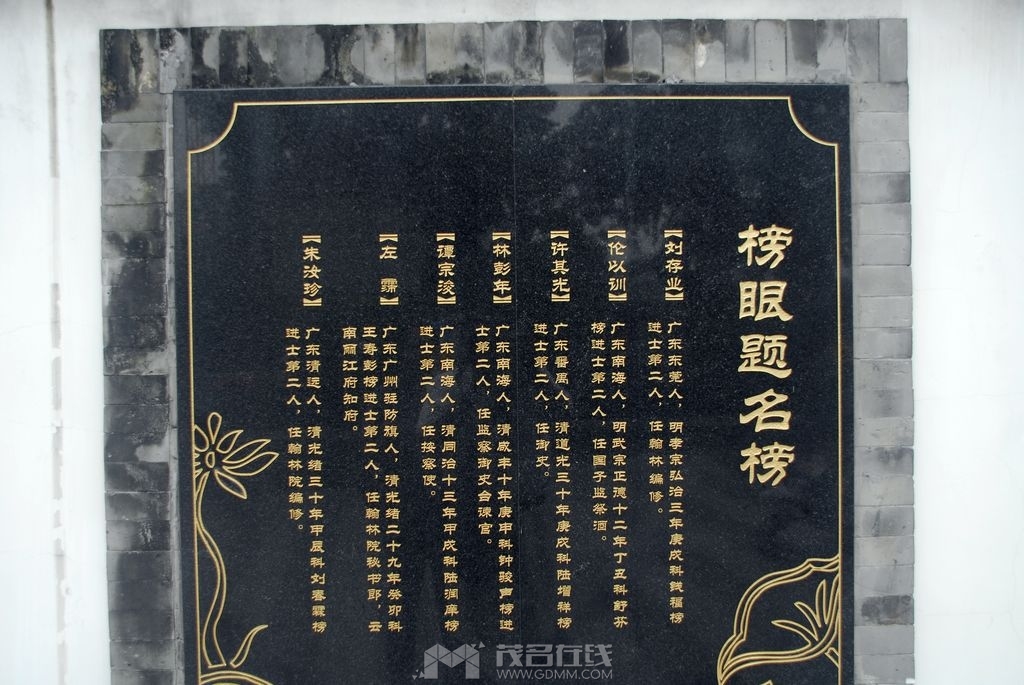 榜眼题名榜
【刘存业】
广东东莞人，明孝宗弘治三年庚戌科钱福榜
进士第二人，任翰林编修。
【伦以训】
广东南海人，明武宗正德十二年丁丑科舒芬
榜进士第二人，任国子监祭酒。
【许其光】
广东番禺人，清道光三十年庚戌科陆增祥榜
进士第二人，任御史。
【林彭年】
广东南海人，清咸丰十年庚申科钟骏声榜进
士第二人，任监察御史台谏官。
【谭宗浚】
广东南海人，清同治十三年甲戌科陆润庠榜
进士第二人，任按察使。
【左霈】
广东广州驻防旗人，清光绪二十九年癸卯科
王寿彭榜进士第二人，任翰林院秘书郎，云
南丽江府知府。
【朱汝珍】
广东清远人，清光绪三十年甲辰科刘春霖榜
进士第二人，任翰林院编修。
茂名在线
WWW.GDMM.COM